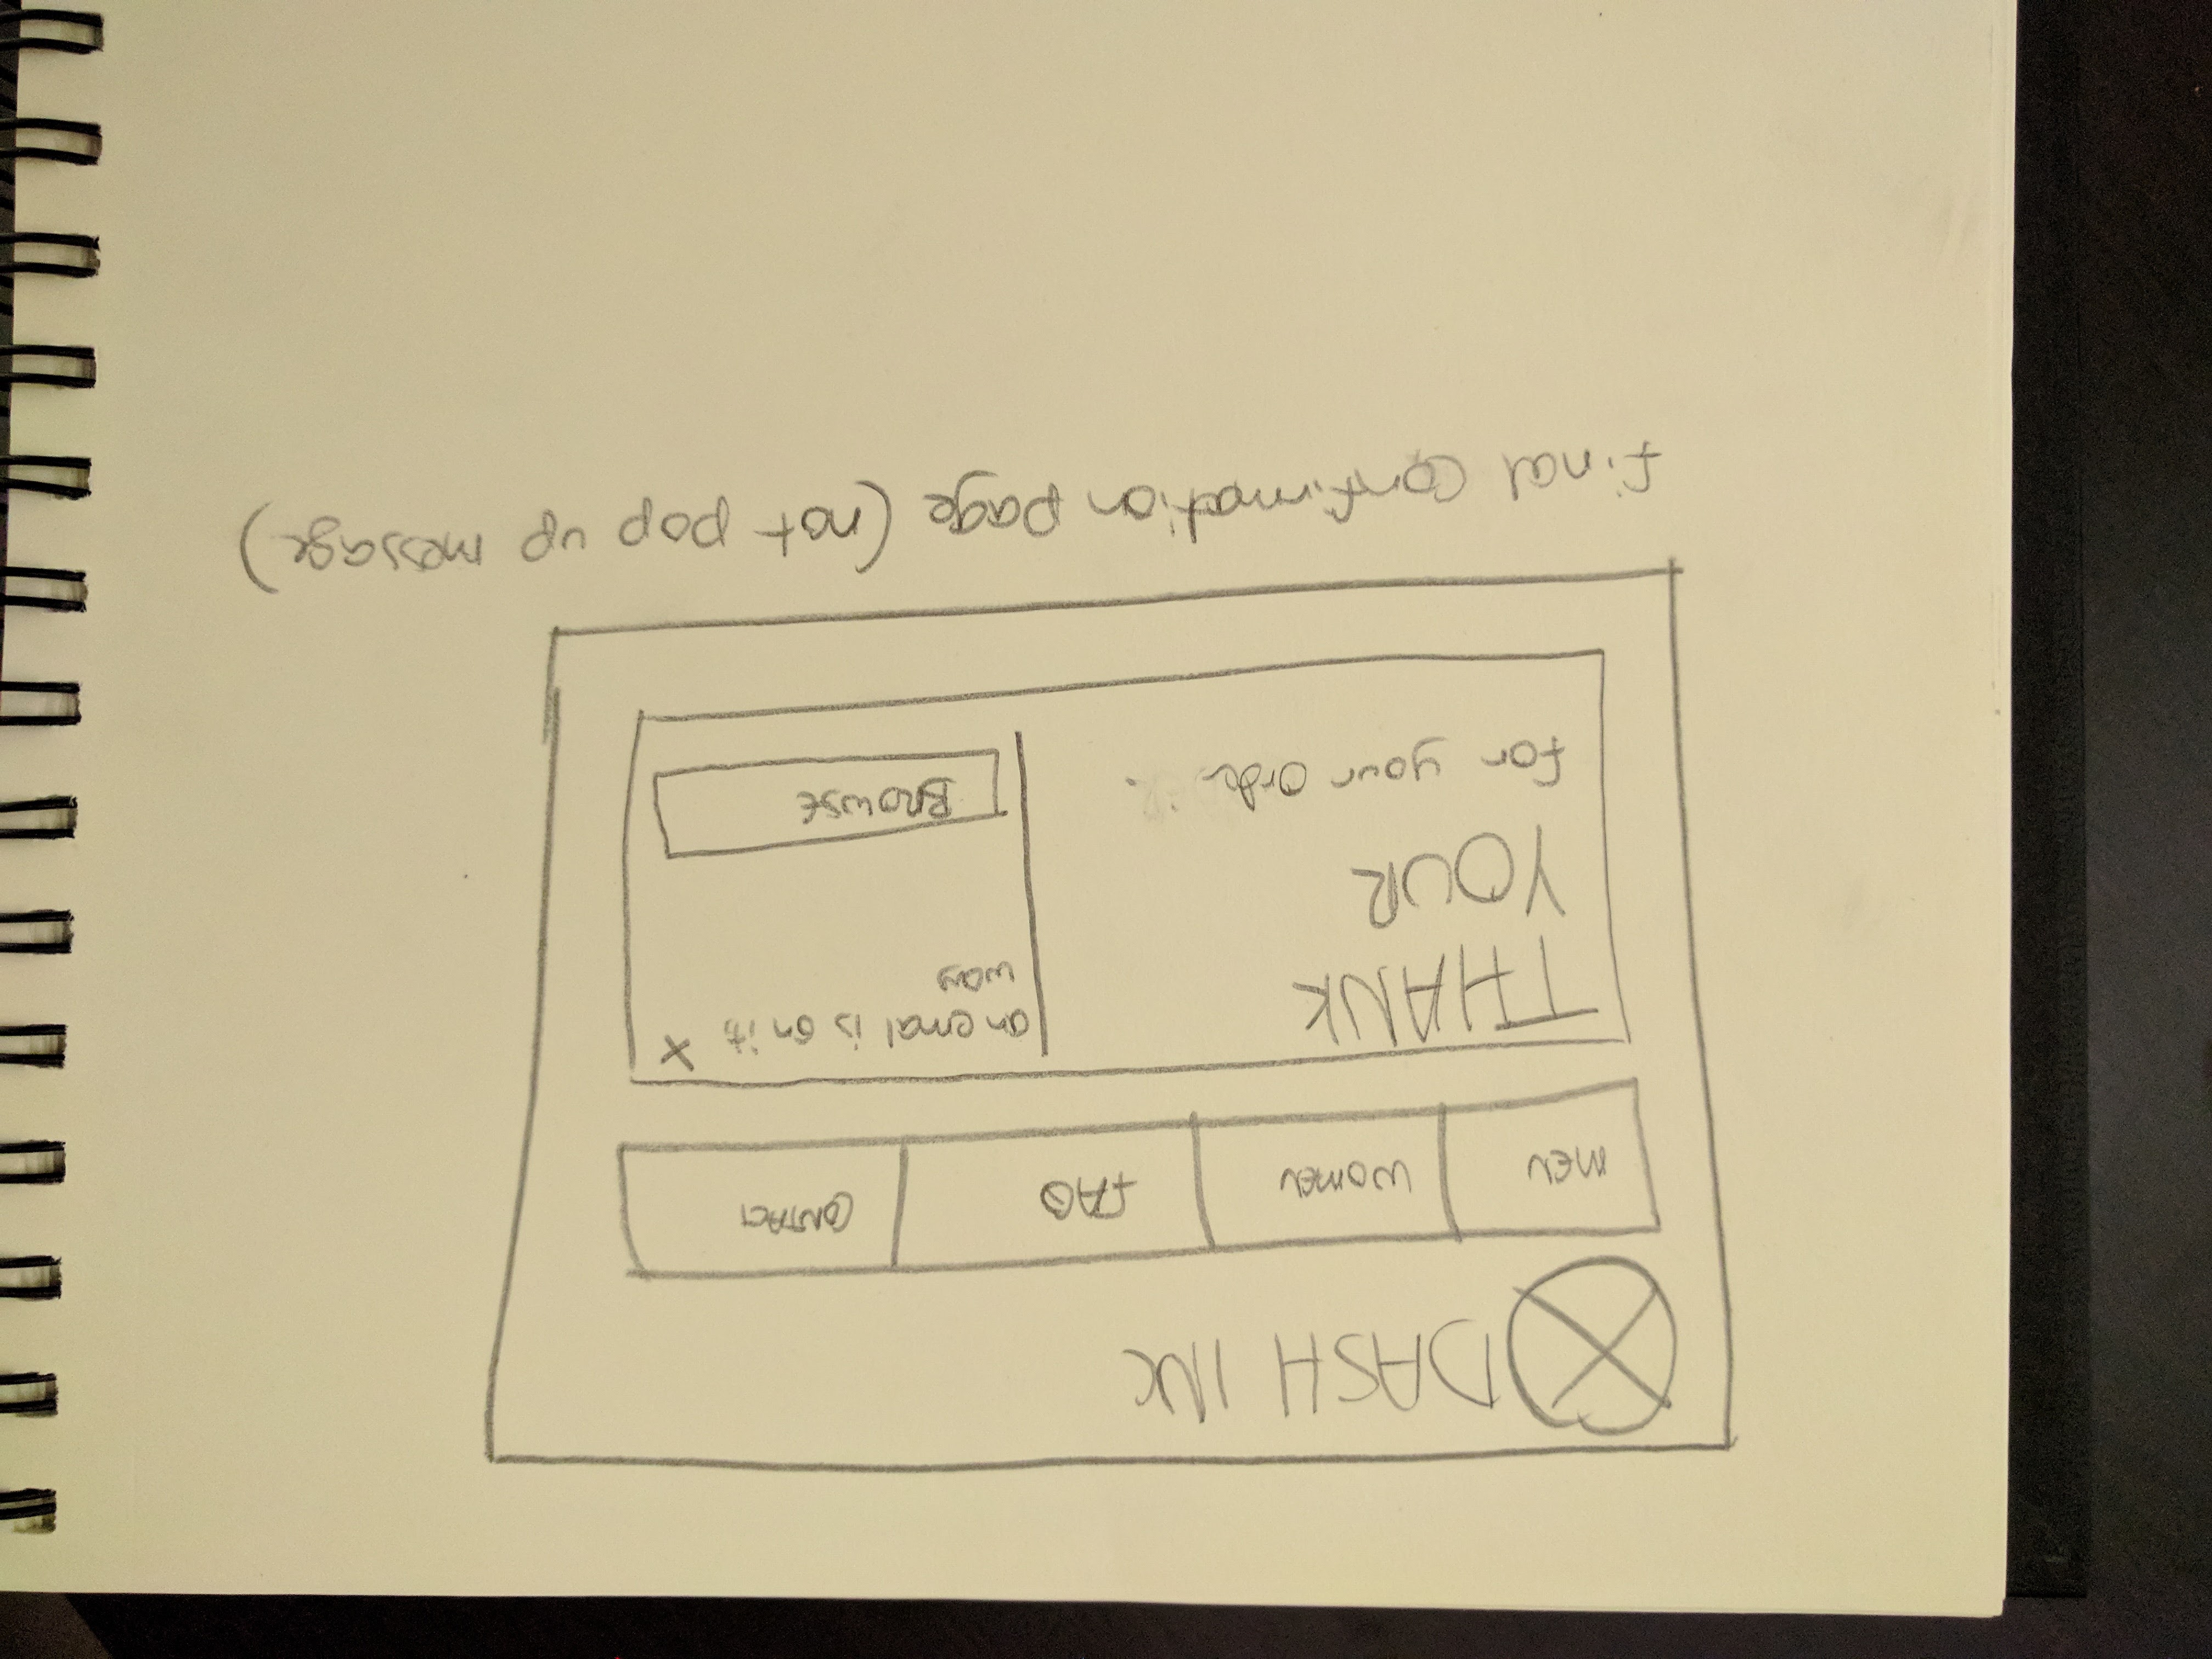 DASH INC
MEN WOMEN FAQ CONTACT
THANK
YOUR
for your order.
an email is on its X
way
BROWSE
final confirmation page (not pop up message)